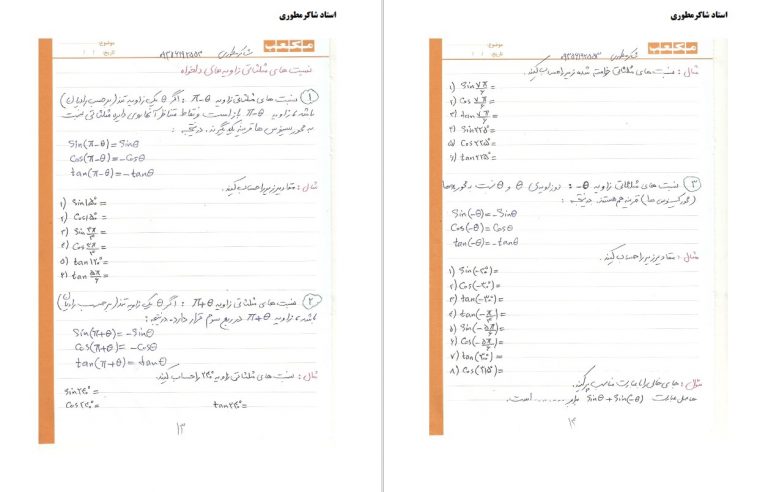 استاد شاکرمطوری
موضوع:
تاریخ: / /
شاکرمطوری
نسبت های مثلثاتی زاویه های دلخواه
① نسبت های مثلثاتی زاویه π-θ : اگر θ یک زاویه تند (برحسب رادیان)
باشد، زاویه π-θ باز است و نقاط متناظر آنها روی دایره مثلثاتی نسبت
به محور سینوس ها قرینه یکدیگرند. درنتیجه:
Sin(π-θ)=Sinθ
Cos(π-θ)=-Cosθ
tan(π-θ)=-tanθ
مثال: مقادیر زیر را حساب کنید.
۱) Sin۱۵۰°=
۲) Cos۱۵۰°=
۳) Sin ۲π/۳ =
۴) Cos ۲π/۳ =
۵) tan۱۲۰°=
۶) tan ۵π/۶ =
② نسبت های مثلثاتی زاویه π+θ : اگر θ یک زاویه تند (برحسب رادیان)
باشد، زاویه π+θ در ربع سوم قرار دارد. درنتیجه:
Sin(π+θ)=-Sinθ
Cos(π+θ)=-Cosθ
tan(π+θ)=tanθ
مثال: نسبت های مثلثاتی زاویه ۲۴۰° را حساب کنید.
Sin۲۴۰°=
Cos۲۴۰°= tan۲۴۰°=
۱۳
استاد شاکرمطوری
موضوع:
تاریخ: / /
شاکرمطوری
مثال: نسبت های مثلثاتی خواسته شده زیر را حساب کنید.
۱) Sin ۷π/۶ =
۲) Cos ۷π/۶ =
۳) tan ۷π/۶ =
۴) Sin۲۲۵°=
۵) Cos۲۲۵°=
۶) tan۲۲۵°=
③ نسبت های مثلثاتی زاویه -θ : دو زاویه ی θ و -θ نسبت به محور xها
(محور کسینوس ها) قرینه هم هستند. درنتیجه:
Sin(-θ)=-Sinθ
Cos(-θ)=Cosθ
tan(-θ)=-tanθ
مثال: مقادیر زیر را حساب کنید.
۱) Sin(-۳۰°)=
۲) Cos(-۳۰°)=
۳) tan(-۳۰°)=
۴) tan(-π/۳)=
۵) Sin(-۵π/۶)=
۶) Cos(-۵π/۶)=
۷) tan(
۸) Cos(
مثال: جاهای خالی را با عبارت مناسب پر کنید.
حاصل عبارت Sinθ+Sin(-θ) برابر .......... است.
۱۴